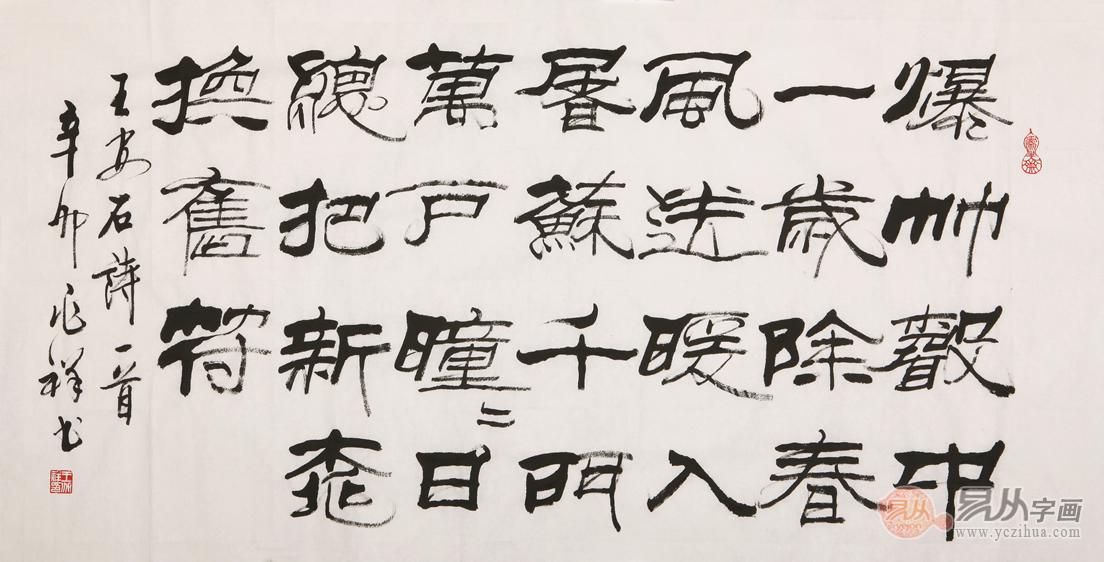 爆竹聲中
一歲除春
風送暖入
屠蘇千門
萬戶曈〻日
總把新桃
換舊符
王安石詩一首
辛卯祥书
易从
易从字画
www.yczihua.com